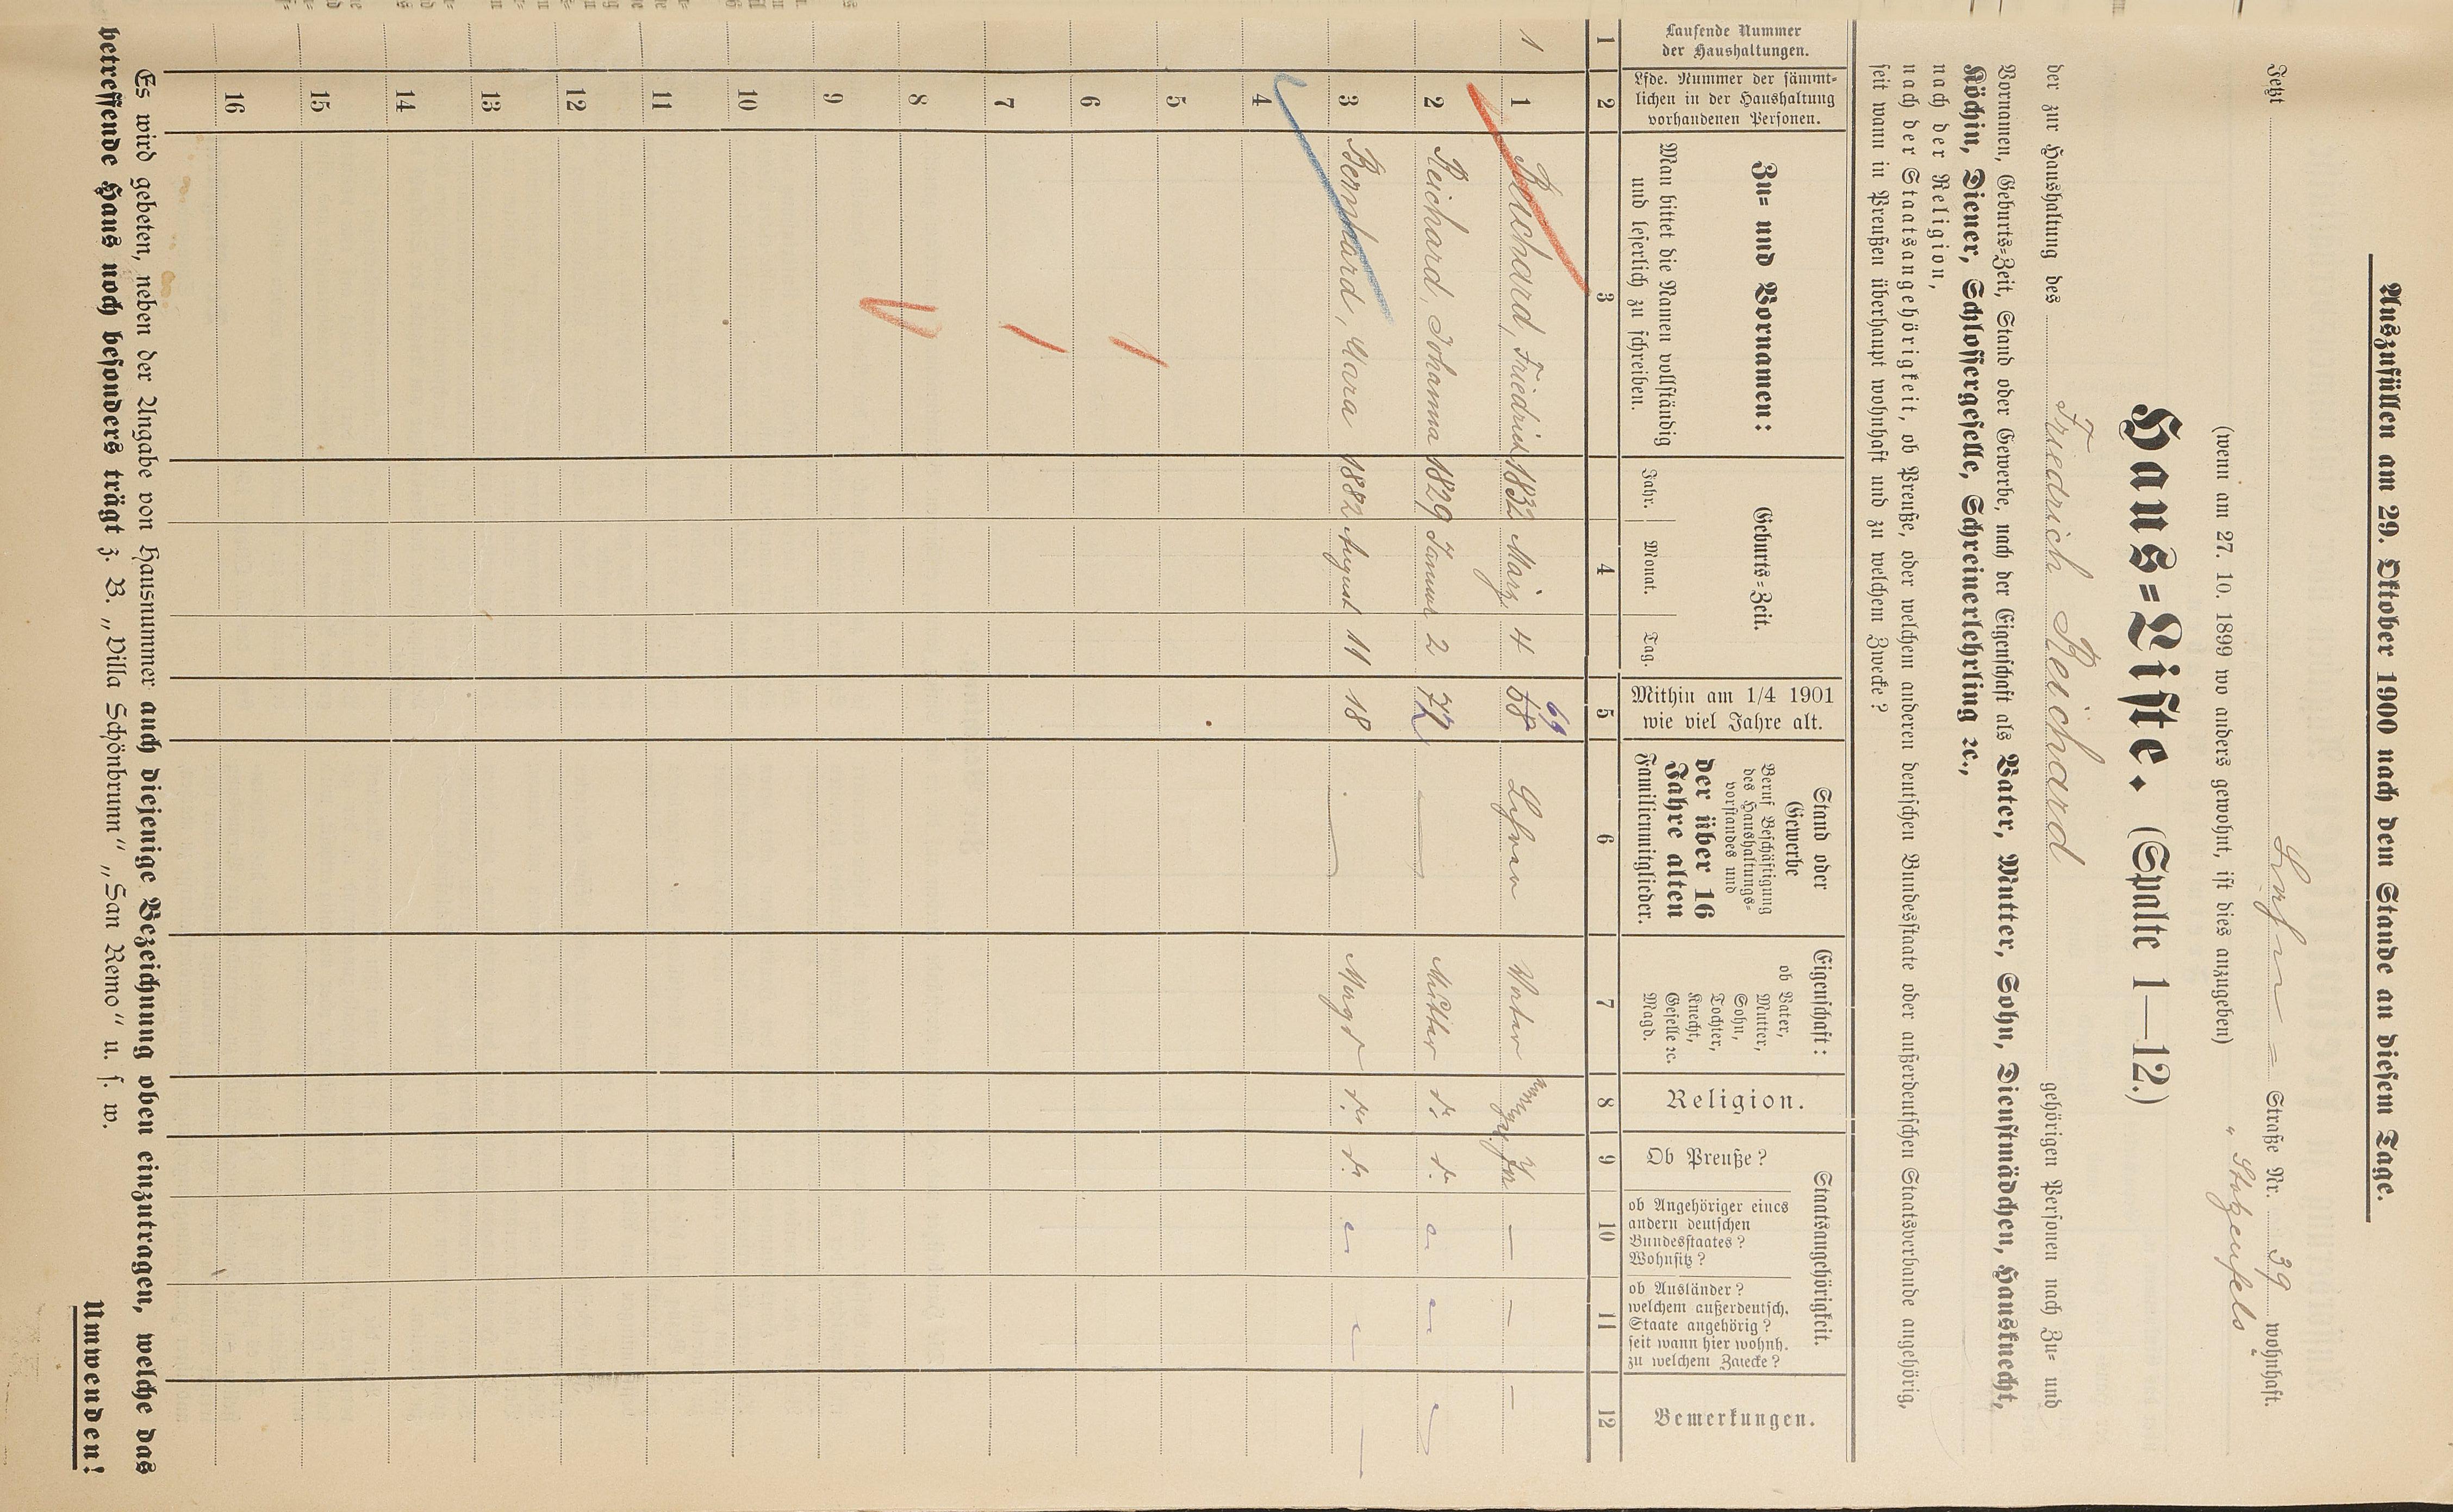 Auszufüllen am 29. Oktober 1900 nach dem Stande an diesem Tage.
Jetzt Straße Nr. 39 wohnhaft.
(wenn am 27. 10. 1899 wo anders gewohnt, ist dies anzugeben) „Stolzenfels"
Haus=Liste. (Spalte 1—12.)
der zur Haushaltung des Friedrich Reichard gehörigen Personen nach Zu= und
Vornamen, Geburts=Zeit, Stand oder Gewerbe, nach der Eigenschaft als Vater, Mutter, Sohn, Dienstmädchen, Hausknecht,
Köchin, Diener, Schlossergeselle, Schreinerlehrling ꝛc.,
nach der Religion,
nach der Staatsangehörigkeit, ob Preuße, oder welchem anderen deutschen Bundesstaate oder außerdeutschen Staatsverbande angehörig,
seit wann in Preußen überhaupt wohnhaft und zu welchem Zwecke?
Laufende Nummer
der Haushaltungen.
Lfde. Nummer der sämmt=
lichen in der Haushaltung
vorhandenen Personen.
Zu= und Vornamen:
Man bittet die Namen vollständig
und leserlich zu schreiben.
Geburts=Zeit.
Jahr. Monat. Tag.
Mithin am 1/4 1901
wie viel Jahre alt.
Stand oder
Gewerbe
Beruf Beschäftigung
des Haushaltungs=
vorstandes und
der über 16
Jahre alten
Familienmitglieder.
Eigenschaft:
ob Vater,
Mutter,
Sohn,
Tochter,
Knecht,
Geselle ꝛc.
Magd.
Religion.
Staatsangehörigkeit.
Ob Preuße?
ob Angehöriger eines
andern deutschen
Bundesstaates?
Wohnsitz?
ob Ausländer?
welchem außerdeutsch.
Staate angehörig?
seit wann hier wohnh.
zu welchem Zwecke?
Bemerkungen.
1 2 3 4 5 6 7 8 9 10 11 12
69
1 1 Reichard, Friedrich 1832 März 4 68 Vater — — —
2 Reichard, Johanna 1829 Januar 2 72 — Mutter d. d.
3 Bernhard, Clara 1882 August 11 18 — Magd d. d.
4
5
6
7
8
9
10
11
12
13
14
15
16
Es wird gebeten, neben der Angabe von Hausnummer auch diejenige Bezeichnung oben einzutragen, welche das
betreffende Haus noch besonders trägt z. B. „Villa Schönbrunn" „San Remo" u. s. w.
Umwenden!